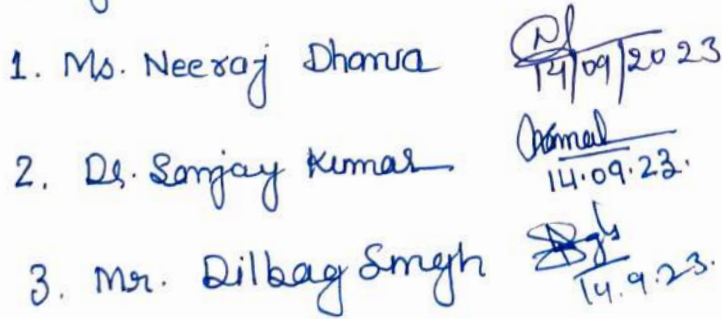 1. Ms. Neeraj 14/09/2023
2. Dr. Sanjay Kumar 14.09.23.
3. Mr. Dilbag Singh 14.9.23.